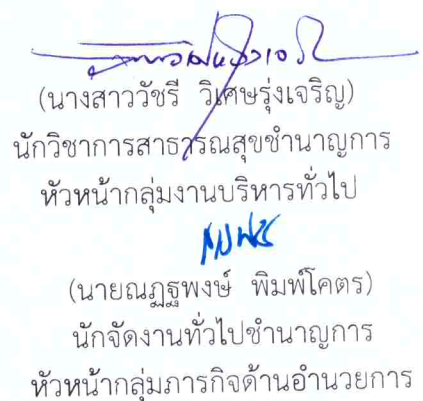 (นางสาววัชรี วิเศษรุ่งเจริญ)
นักวิชาการสาธารณสุขชำนาญการ
หัวหน้ากลุ่มงานบริหารทั่วไป
(นายณฏฐพงษ์ พิมพ์โคตร)
นักจัดงานทั่วไปชำนาญการ
หัวหน้ากลุ่มภารกิจด้านอำนวยการ